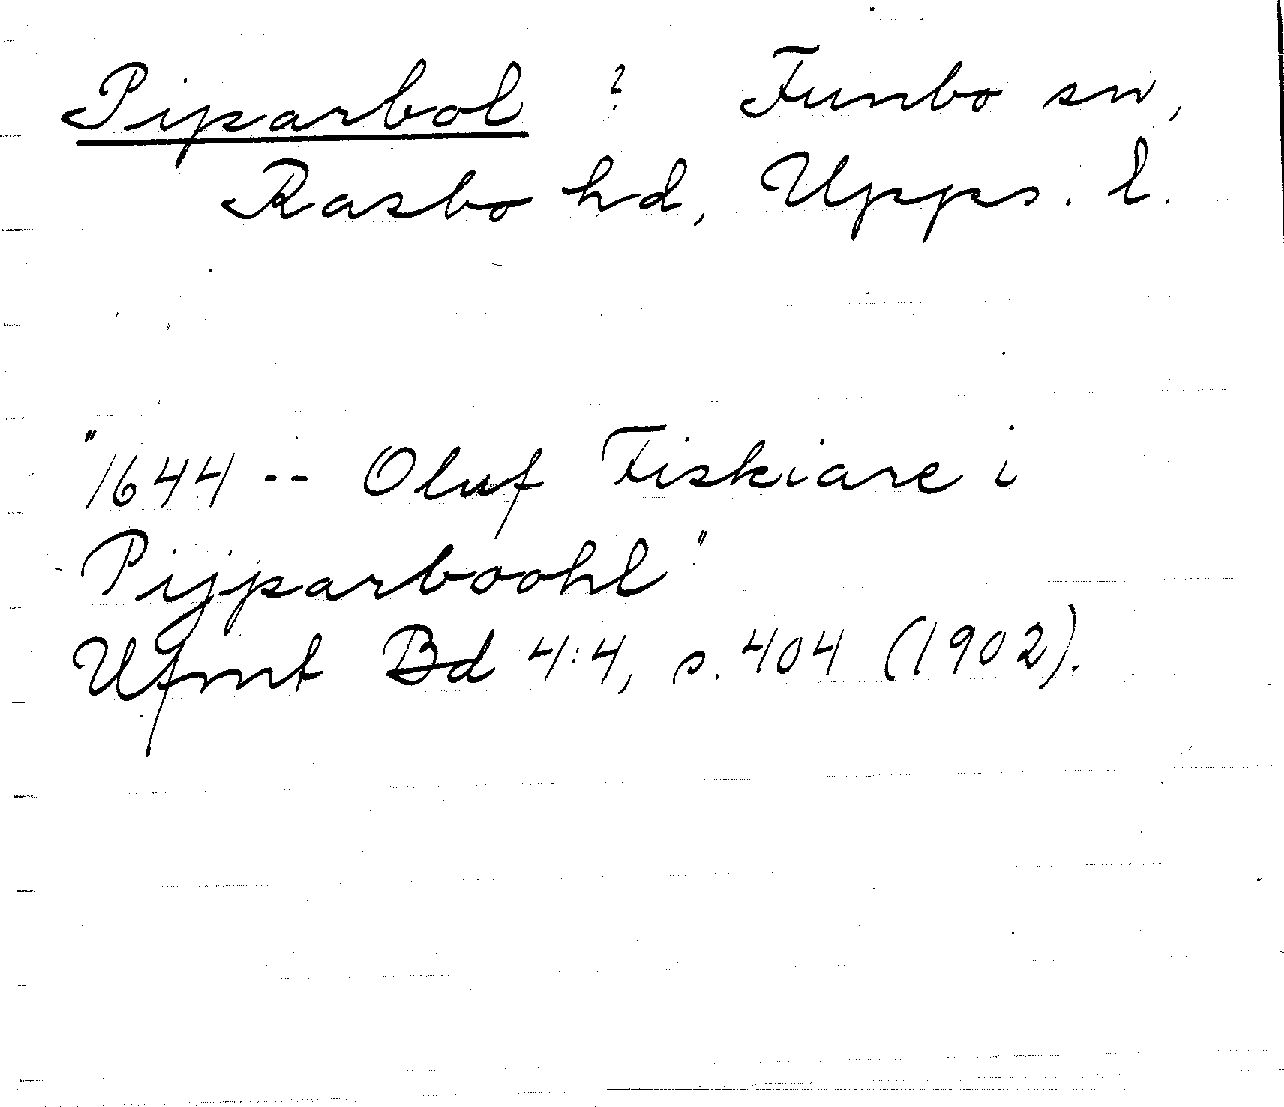 Piparbol ? Funbo sn,
Rasbo hd, Upps. l.
"1644 -- Oluf Fiskiare i
Pijparboohl"
Ufmt Bd 4:4, s. 404 (1902).